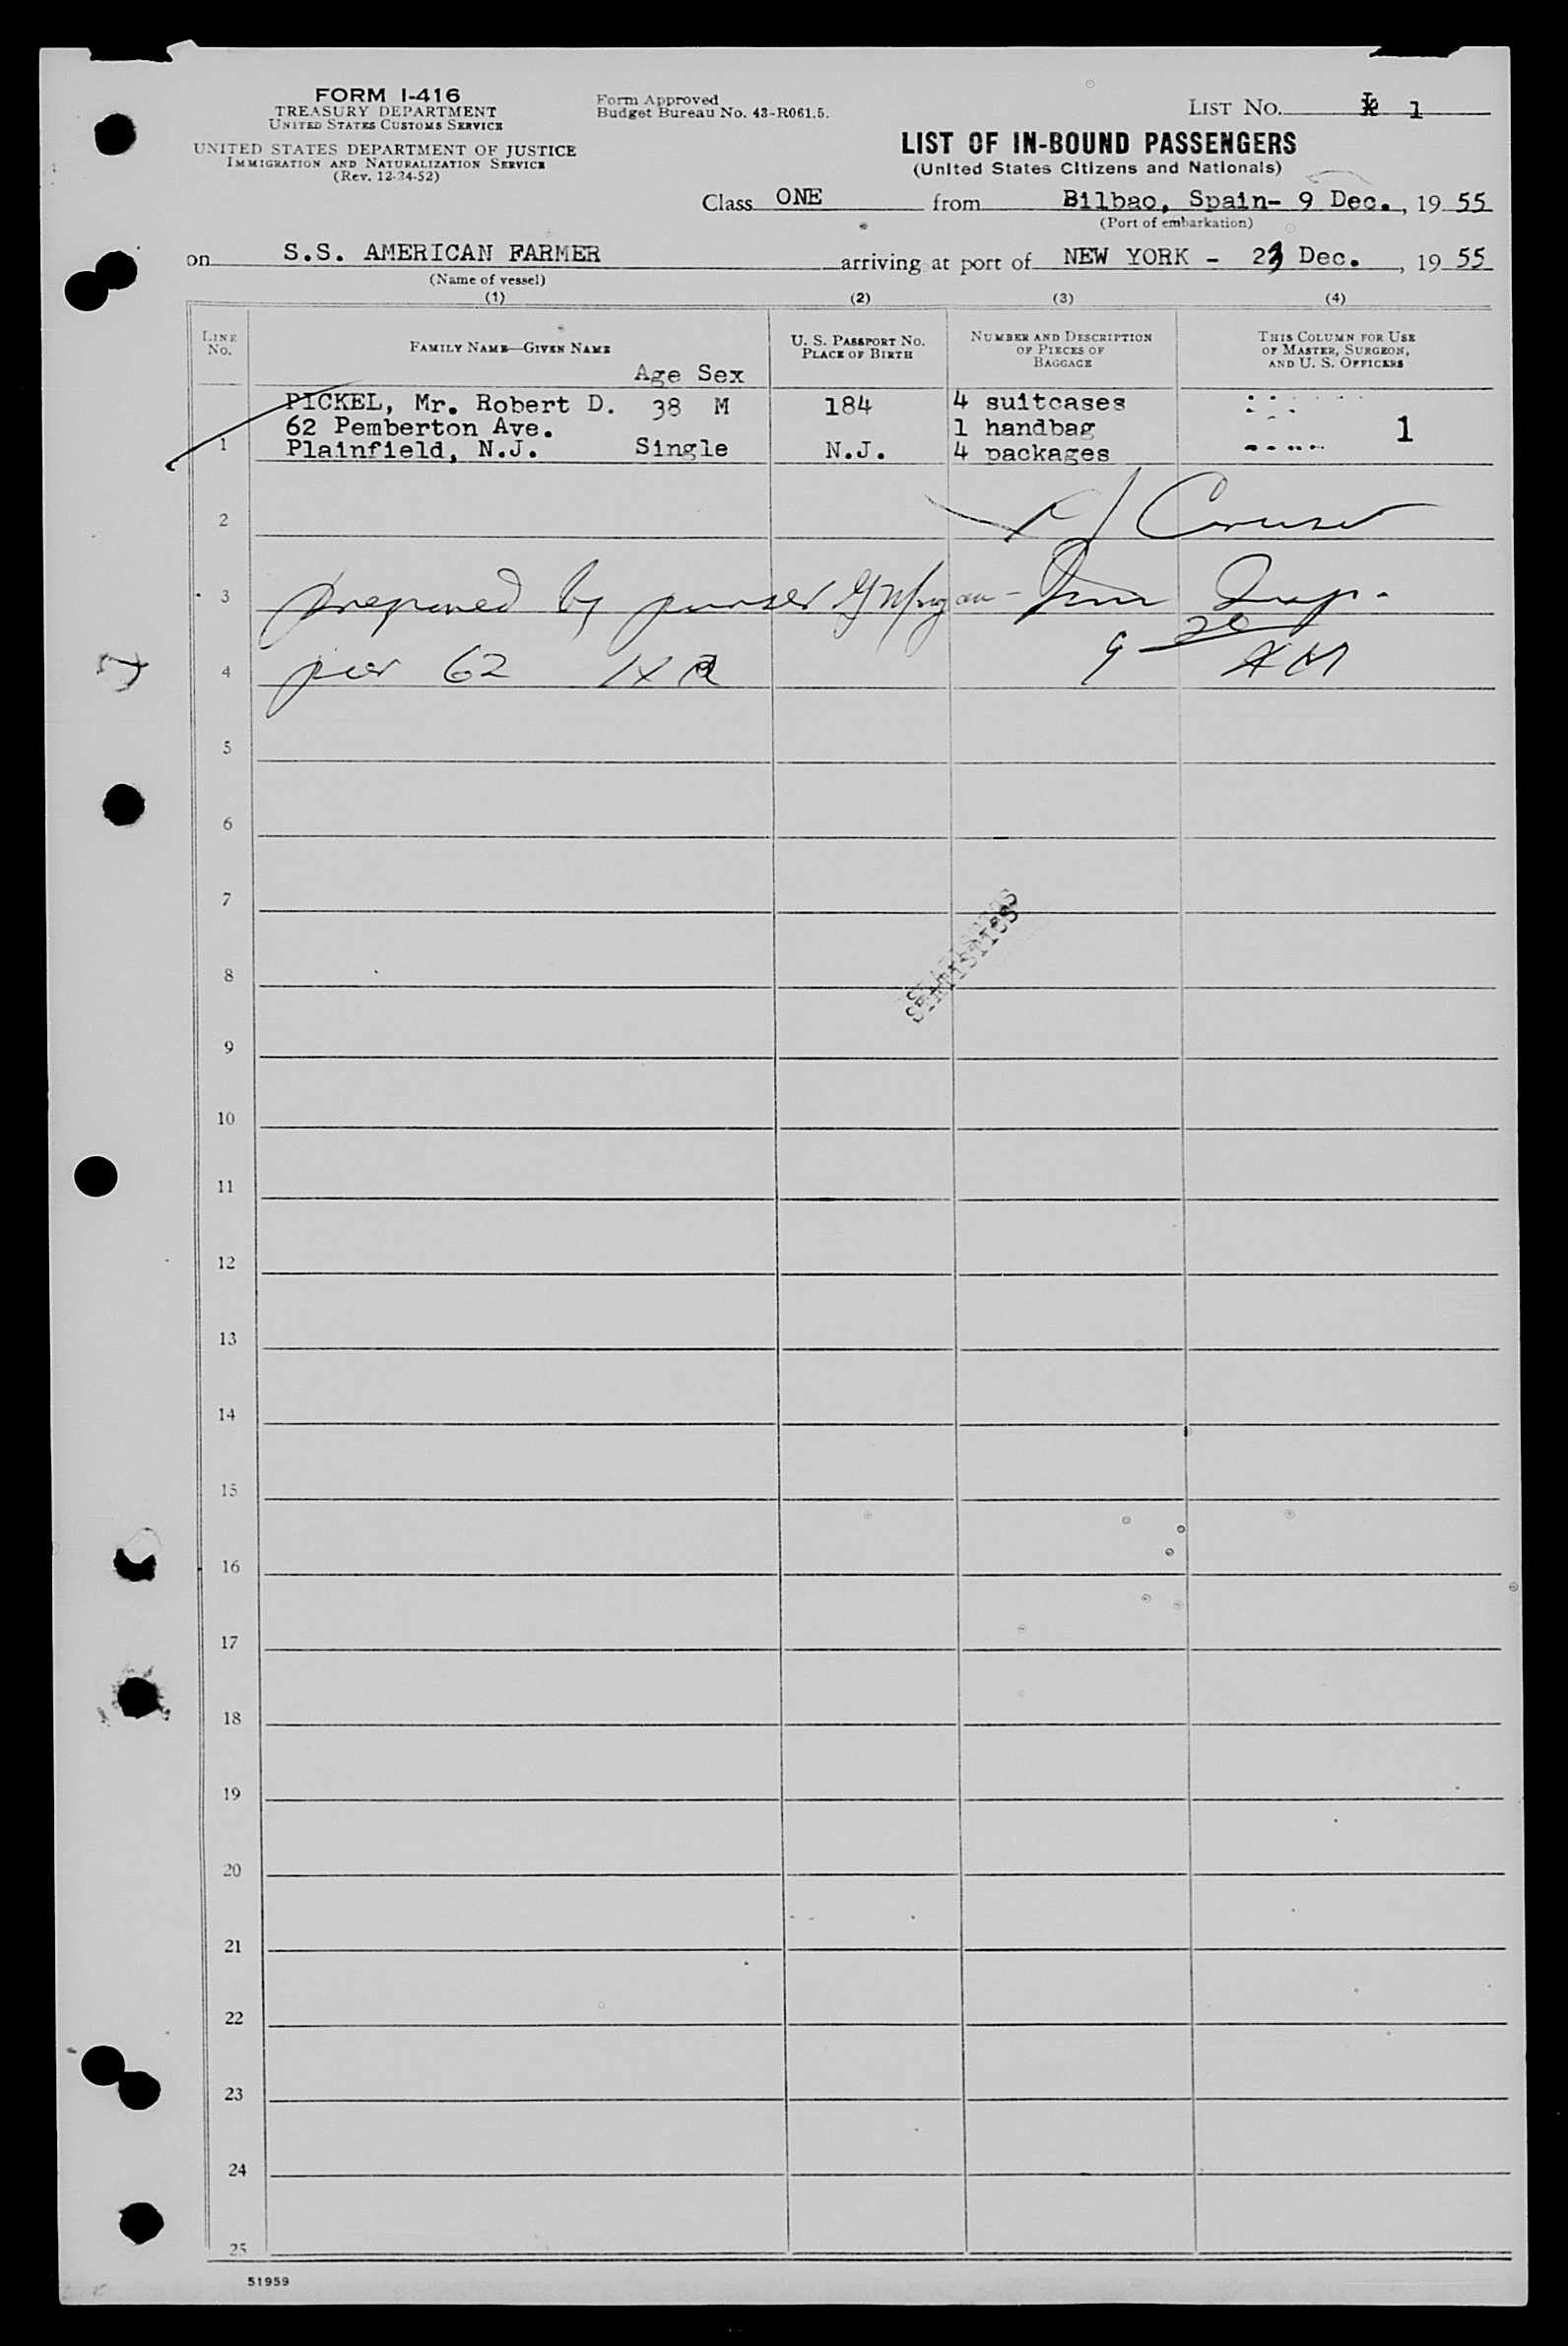 FORM I-416
TREASURY DEPARTMENT
UNITED STATES CUSTOMS SERVICE
UNITED STATES DEPARTMENT OF JUSTICE
IMMIGRATION AND NATURALIZATION SERVICE
(Rev. 12-24-52)
Form Approved
Budget Bureau No. 43-R061.5.
LIST No. 1
LIST OF IN-BOUND PASSENGERS
(United States Citizens and Nationals)
Class ONE from Bilbao, Spain- 9 Dec., 19 55
(Port of embarkation)
on S.S. AMERICAN FARMER arriving at port of NEW YORK - 23 Dec. , 19 55
(Name of vessel)
(1) (2) (3) (4)
LINE No.
FAMILY NAME—GIVEN NAME
Age Sex
U. S. PASSPORT NO.
PLACE OF BIRTH
NUMBER AND DESCRIPTION
OF PIECES OF
BAGGAGE
THIS COLUMN FOR USE
OF MASTER, SURGEON,
AND U. S. OFFICERS
PICKEL, Mr. Robert D. 38 M 184 4 suitcases
62 Pemberton Ave. 1 handbag 1
1 Plainfield, N.J. Single N.J. 4 packages
2 Caruso
3 prepared by purser Insp.
4 pier 62 NR 9 20 AM
5
6
7
STATISTICS
8
9
10
11
12
13
14
15
16
17
18
19
20
21
22
23
24
25
51959